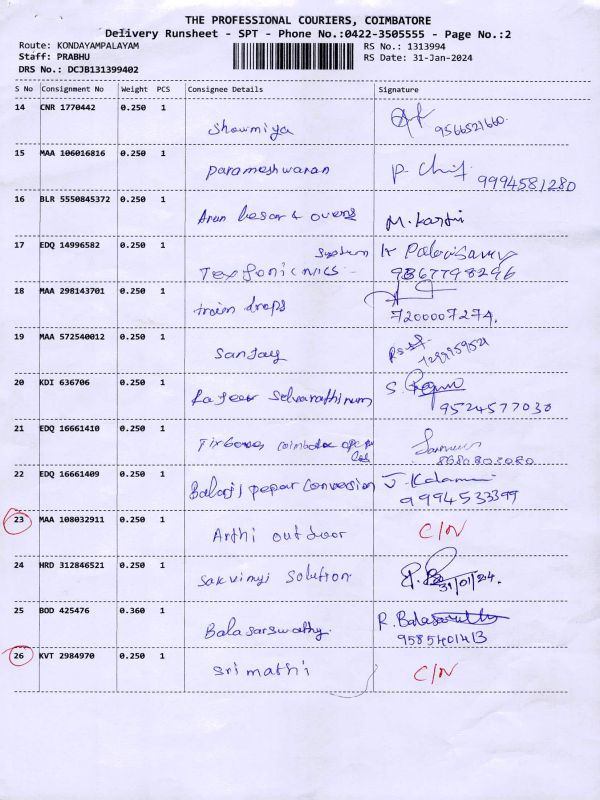 THE PROFESSIONAL COURIERS, COIMBATORE
Delivery Runsheet - SPT - Phone No.:0422-3505555 - Page No.:2
Route: KONDAYAMPALAYAM RS No.: 1313994
Staff: PRABHU RS Date: 31-Jan-2024
DRS No.: DCJB131399402
S No Consignment No Weight PCS Consignee Details Signature
14 CNR 1770442 0.250 1
Showmiya 9566521660
15 MAA 106016816 0.250 1
Parameshwaran P. 9994581280
16 BLR 5550845372 0.250 1
Arun & ovens M.
17 EDQ 14996582 0.250 1 System
9367798296
18 MAA 298143701 0.250 1
train drops 7200007274.
19 MAA 572540012 0.250 1
Sanjay
20 KDI 636706 0.250 1 S.
Selvarathinum 9524577030
21 EDQ 16661410 0.250 1
8680803080
22 EDQ 16661409 0.250 1 J.
Balaji pepar conversion 9994533399
23 MAA 108032911 0.250 1
Arthi outdoor C/N
24 HRD 312846521 0.250 1
Solution 31/01/24.
25 BOD 425476 0.360 1 R. Balasaruthy
Balasarswathy. 9585401413
26 KVT 2984970 0.250 1
Srimathi C/N